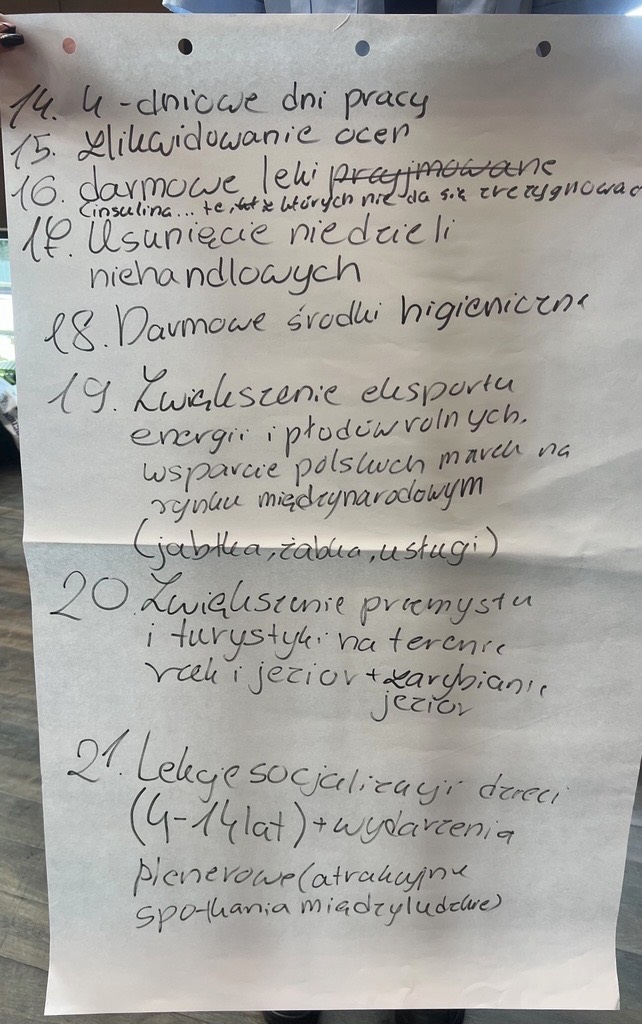 14. 4-dniowe dni pracy
15. Zlikwidowanie ocen
16. darmowe leki przyjmowane
(insulina... te, z których nie da się zrezygnować
17. Usunięcie niedzieli
niehandlowych
18. Darmowe środki higieniczne
19. Zwiększenie eksportu
energii i płodów rolnych.
wsparcie polskich marek na
rynku międzynarodowym
(jabłka, żabka, usługi)
20. Zwiększenie przemysłu
i turystyki na terenie
rzek i jezior + zarybianie
jezior
21. Lekcje socjalizacji dzieci
(4-14 lat) + wydarzenia
plenerowe (atrakcyjne
spotkania międzyludzkie)